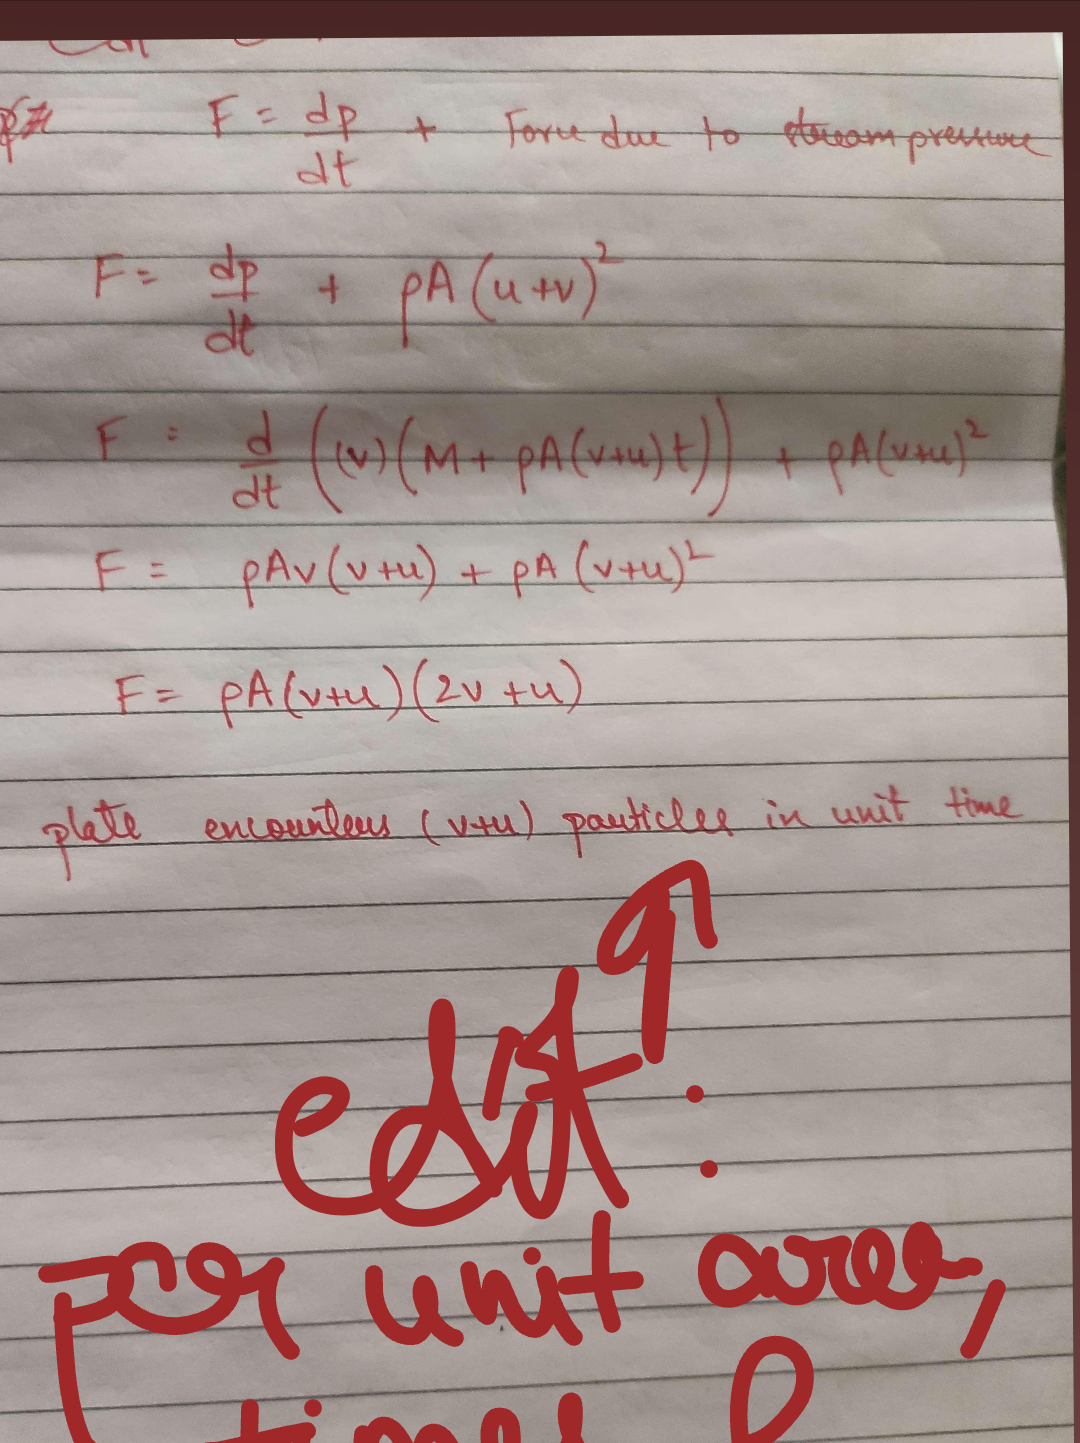 F = dp/dt + Force due to stream pressure
F = dp/dt + ρA(u+v)²
F = d/dt ((v)(M + ρA(v+u)t)) + ρA(v+u)²
F = ρAv(v+u) + ρA(v+u)²
F = ρA(v+u)(2v+u)
plate encounters (v+u) particles in unit time
edit:
Per unit area,
times ρ